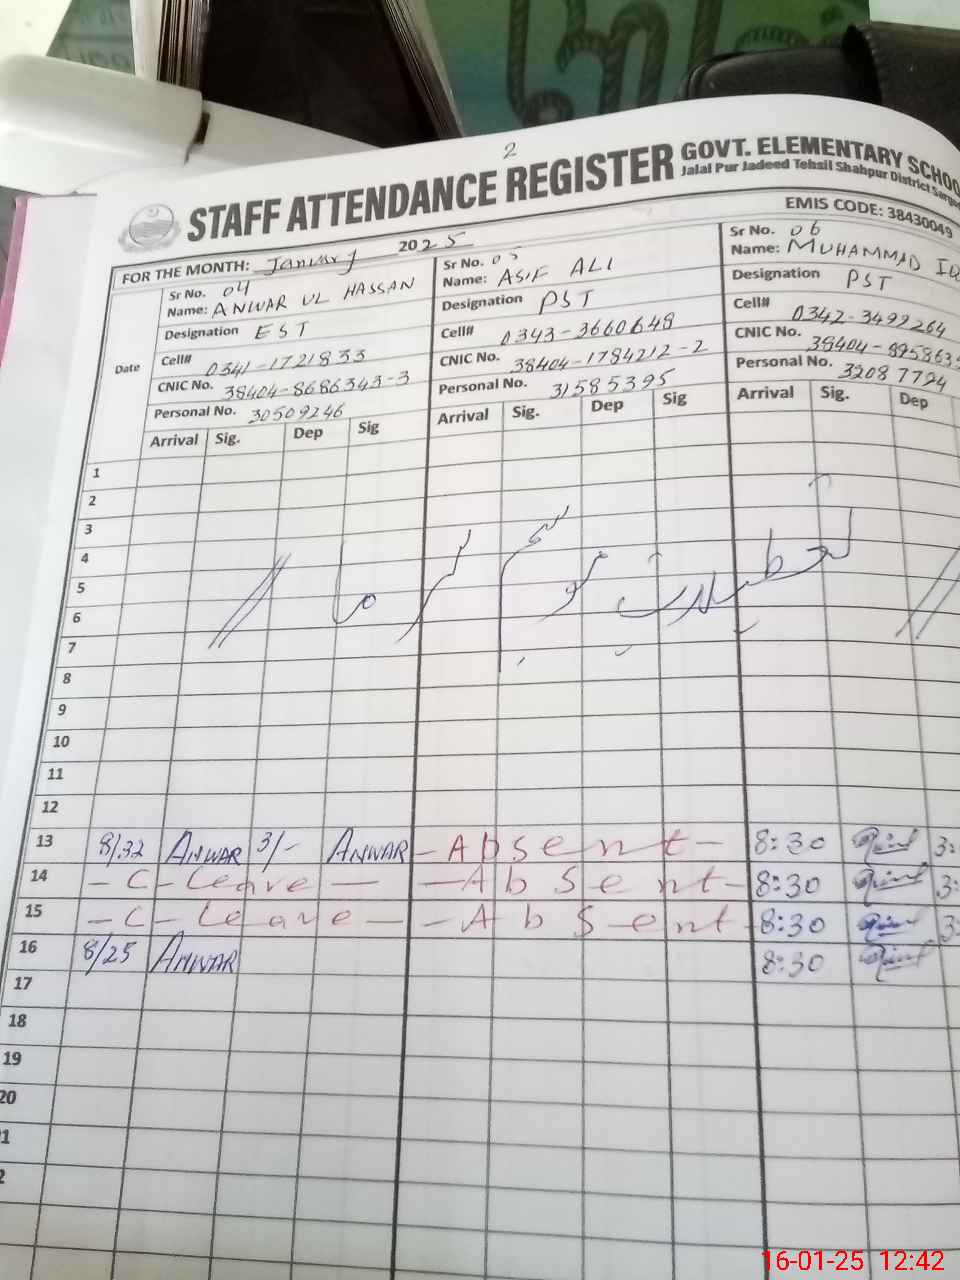 2
STAFF ATTENDANCE REGISTER GOVT. ELEMENTARY SCHOO
Jalal Pur Jadeed Tehsil Shahpur District Sargo
EMIS CODE: 38430049
FOR THE MONTH: January 2025
Date
Sr No. 04
Name: ANWAR UL HASSAN
Designation EST
Cell# 0341-1721833
CNIC No. 38404-8686343-3
Personal No. 30509246
Arrival Sig. Dep Sig
Sr No. 05
Name: ASIF ALI
Designation PST
Cell# 0343-3660648
CNIC No. 38404-1784212-2
Personal No. 31585395
Arrival Sig. Dep Sig
Sr No. 06
Name: MUHAMMAD
Designation PST
Cell# 0342-3499264
CNIC No. 38404-895863
Personal No. 32087794
Arrival Sig. Dep
1
2
3
4
تعطیلات موسم گرما
5
6
7
8
9
10
11
12
13 8/32 ANWAR 3/- ANWAR - Absent - 8:30 3:
14 - C - Leave - - Absent - 8:30 3:
15 - C - Leave - - Absent - 8:30 3:
16 8/25 ANWAR 8:30
17
18
19
20
1
2
16-01-25 12:42